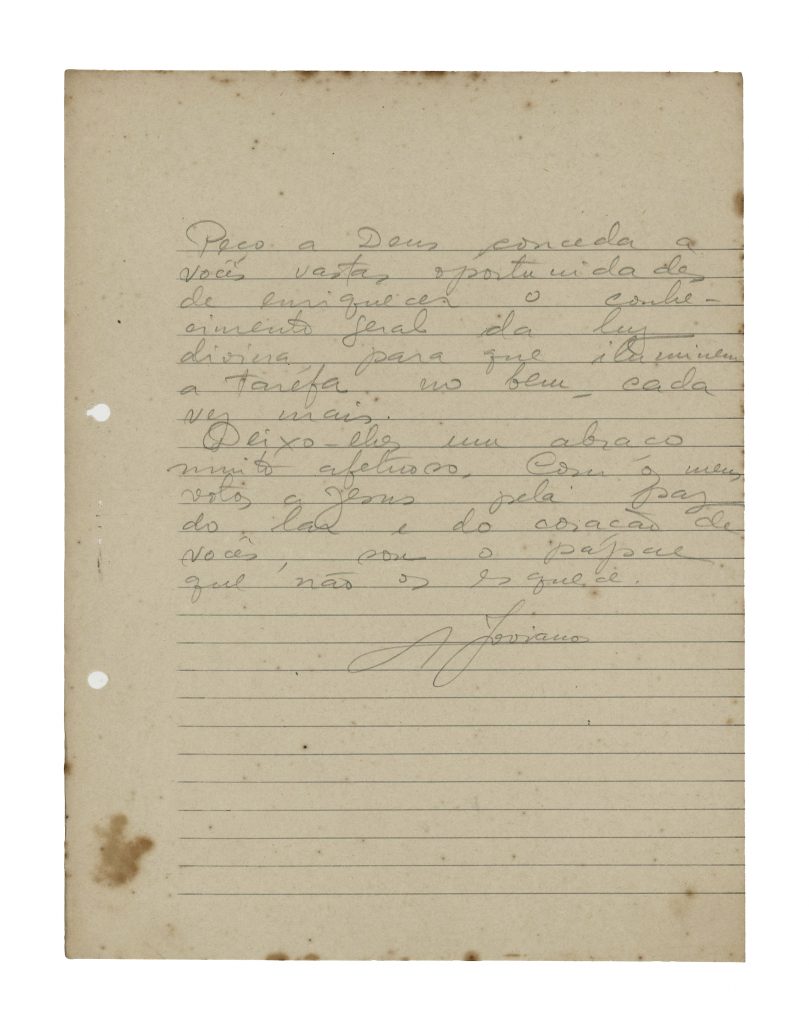 Peço a Deus conceda a
vocês vastas oportunidades
de enriquecer o conhe-
cimento geral da luz
divina, para que iluminem
a tarefa no bem, cada
vez mais.
Deixo-lhes um abraço
muito afetuoso. Com os meus
votos a Jesus pela paz
do lar e do coração de
vocês, sou o papae
que não os esquece.
A Joviano